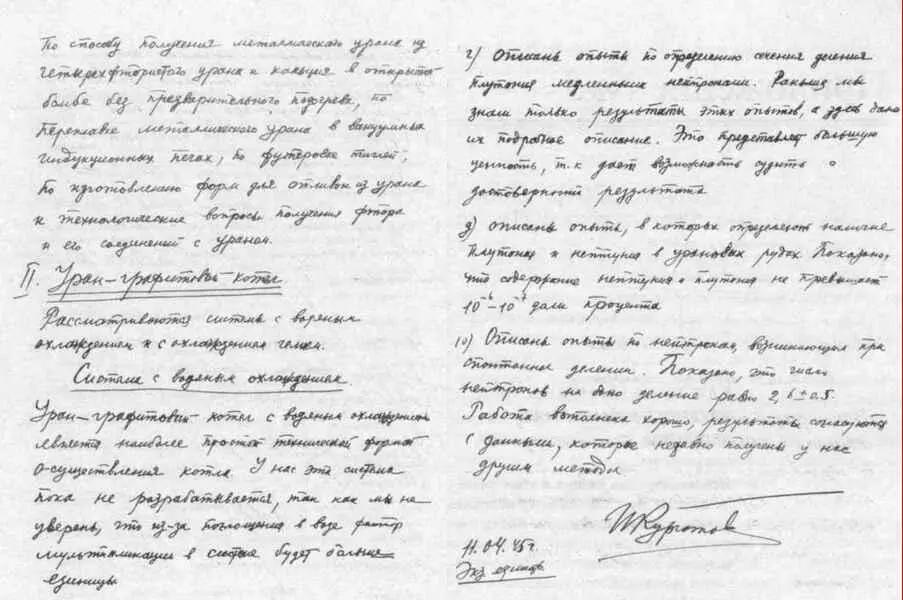 По способу получения металлического урана из
четырехфтористого урана и кальция в открытой
бомбе без предварительного подогрева, по
переплавке металлического урана в вакуумных
индукционных печах, по футеровке тиглей,
по изготовлению форм для отливок из урана
и технологические вопросы получения фтора
и его соединений с ураном.
II. Уран-графитовый котел
Рассматриваются системы с водяным
охлаждением и с охлаждением гелием.
Система с водяным охлаждением.
Уран-графитовый котел с водяным охлаждением
является наиболее простой технической формой
осуществления котла. У нас эта система
пока не разрабатывается, так как мы не
уверены, что из-за поглощения в воде фактор
мультипликации в системе будет больше
единицы
г) Описаны опыты по определению сечения деления
плутония медленными нейтронами. Раньше мы
знали только результаты этих опытов, а здесь дано
их подробное описание. Это представляет большую
ценность, т.к. дает возможность судить о
достоверности результата
д) Описаны опыты, в которых определяют наличие
плутония и нептуния в урановых рудах. Показано,
что содержание нептуния и плутония не превышает
10⁻⁶–10⁻⁷ доли процента
10) Описаны опыты по нейтронам, возникающим при
спонтанном делении. Показано, что число
нейтронов на одно деление равно 2,6 ± 0.5.
Работа выполнена хорошо, результаты согласуются
с данными, которые недавно получены у нас
другим методом
ИКурчатов
11.04.45г.
Экз единств